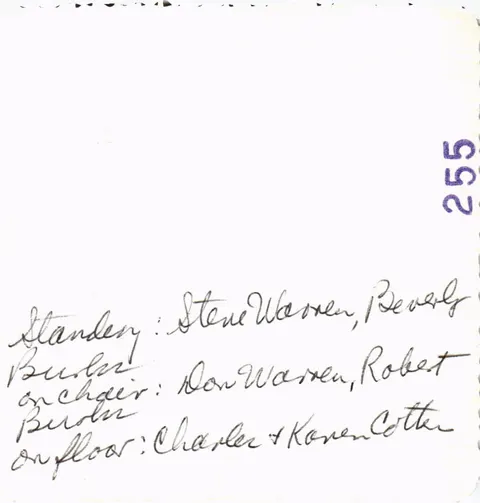 255
Standing: Steve Warren, Beverly
Burks
on chair: Don Warren, Robert
Burks
on floor: Charles + Karen Cotter